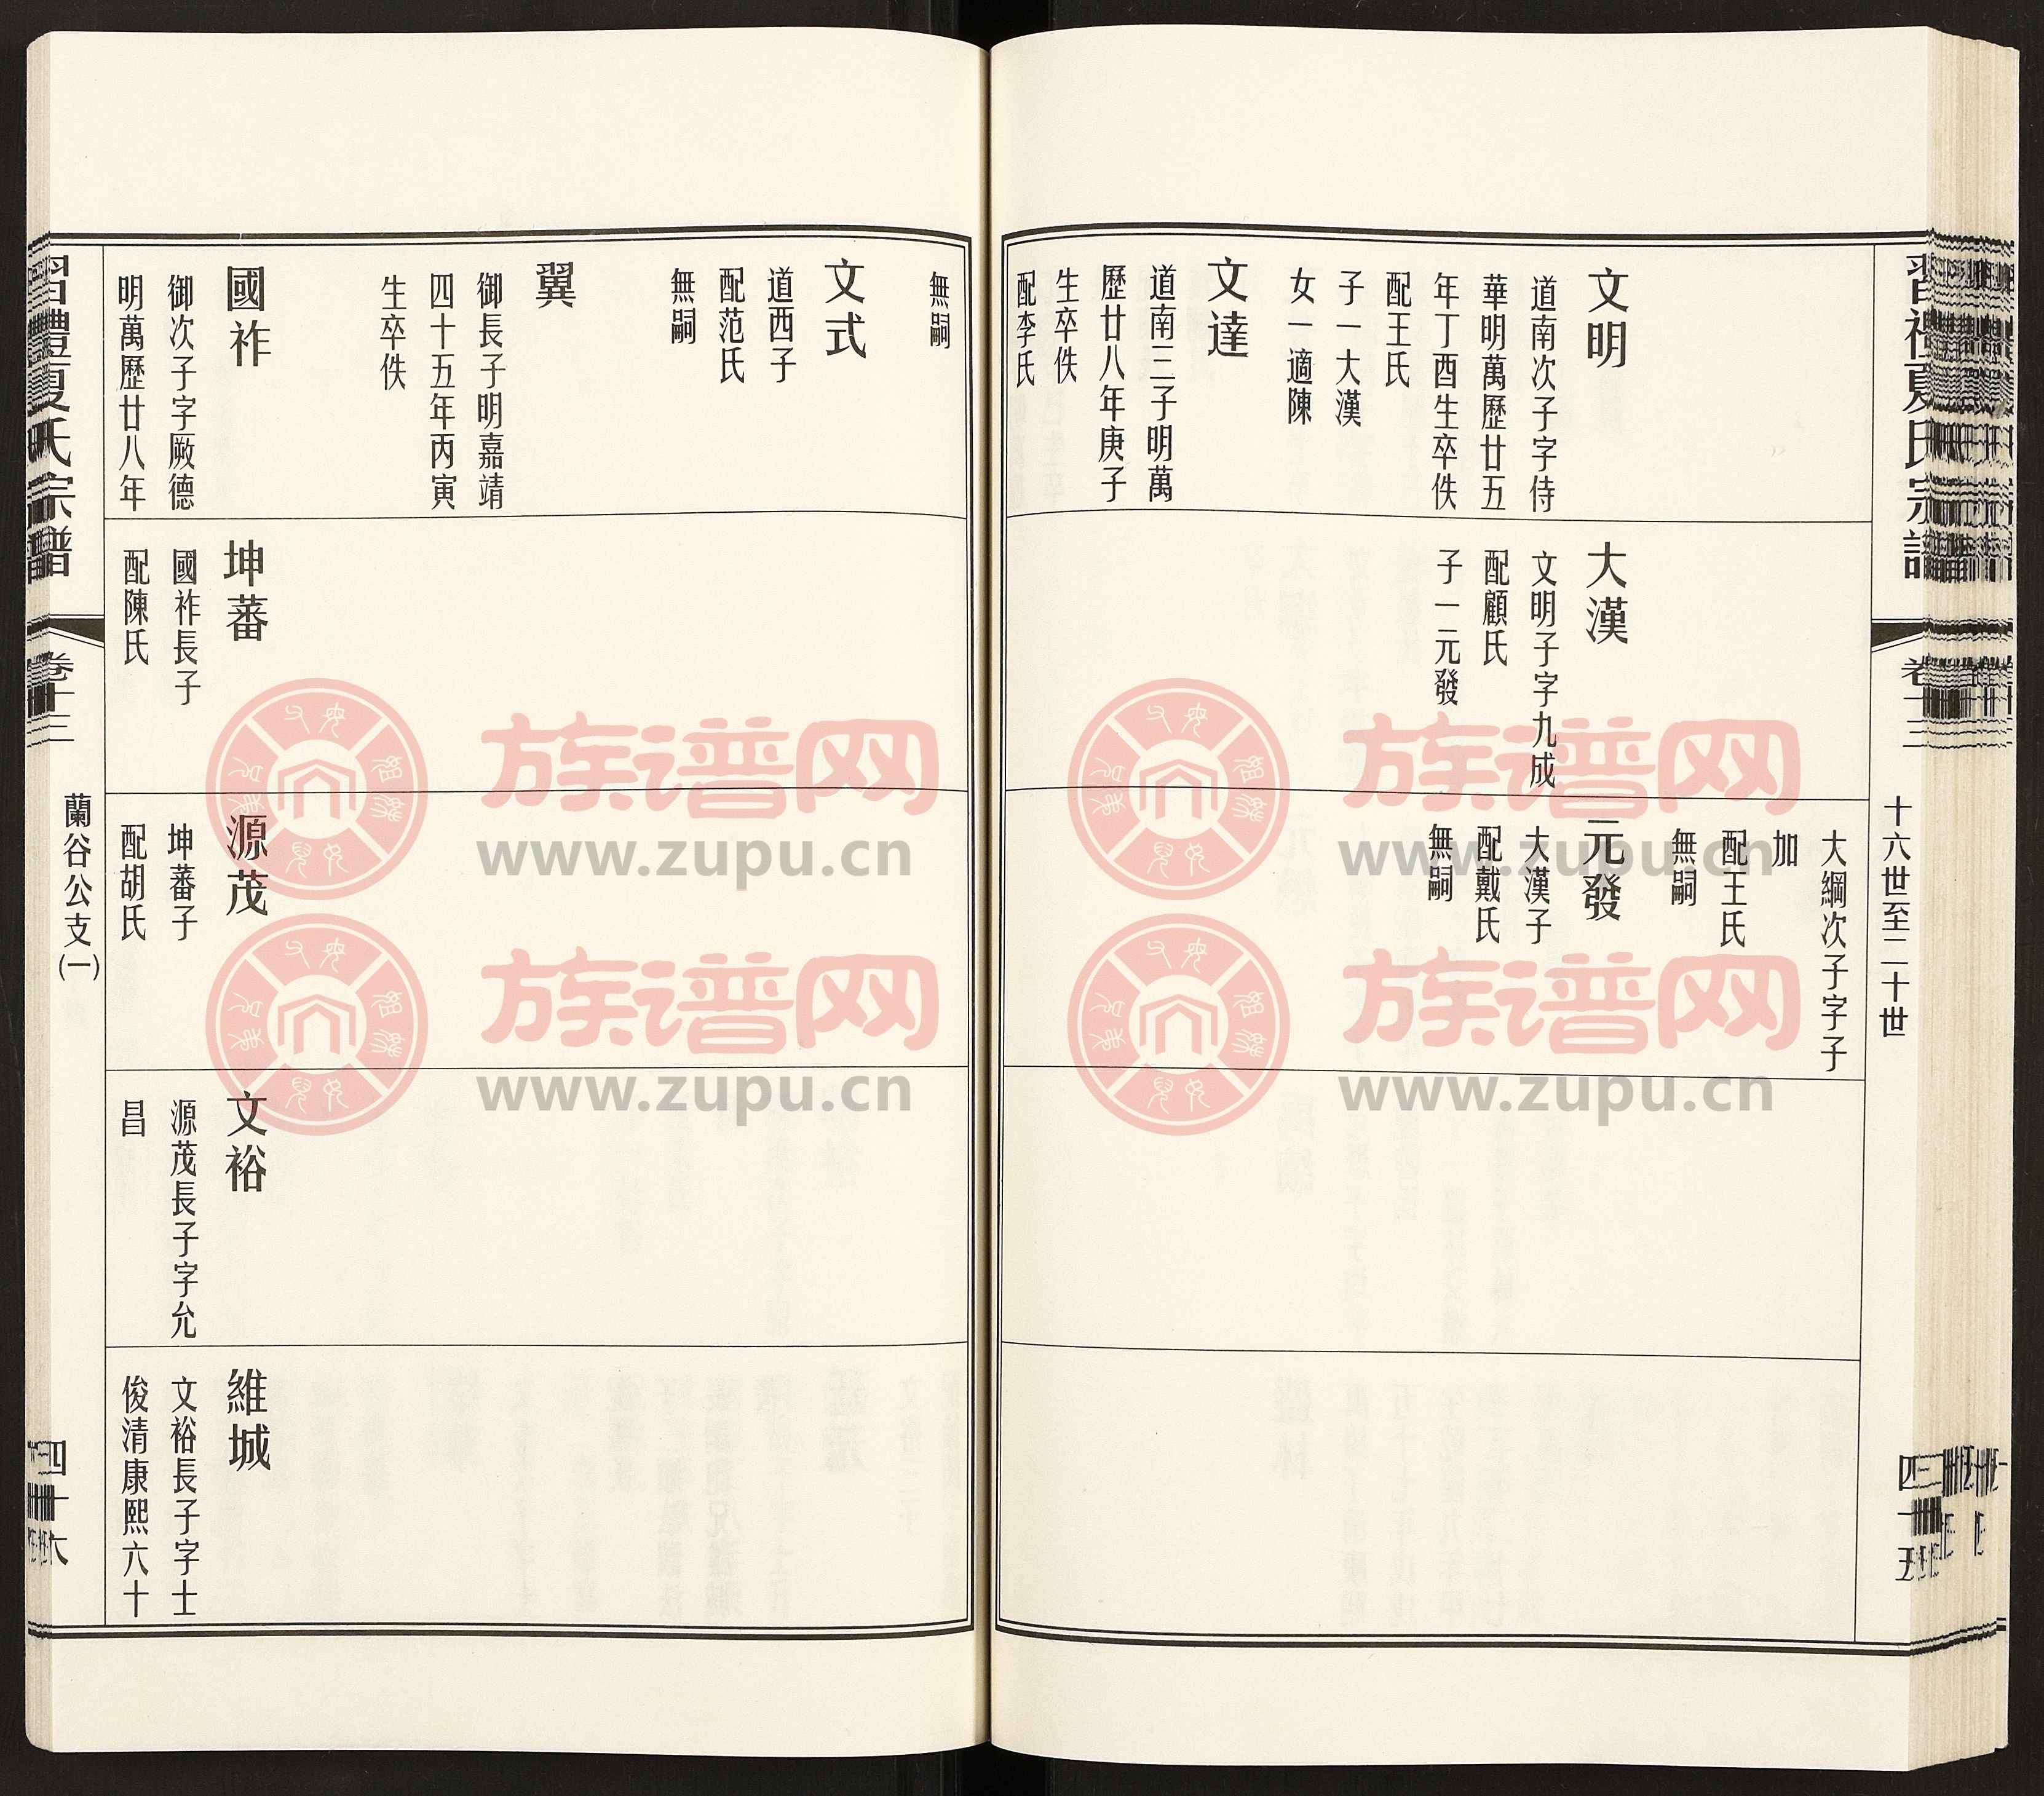 習禮夏氏宗譜
卷十三
十六世至二十世
四十五
文明
道南次子字侍
華明萬歷廿五
年丁酉生卒佚
配王氏
子一大漢
女一適陳
文達
道南三子明萬
歷廿八年庚子
生卒佚
配李氏
大漢
文明子字九成
配顧氏
子一元發
大綱次子字子
加
配王氏
無嗣
元發
大漢子
配戴氏
無嗣
無嗣
文式
道西子
配范氏
無嗣
翼
御長子明嘉靖
四十五年丙寅
生卒佚
國祚
御次子字厥德
明萬歷廿八年
坤蕃
國祚長子
配陳氏
源茂
坤蕃子
配胡氏
文裕
源茂長子字允
昌
維城
文裕長子字士
俊清康熙六十
習禮夏氏宗譜
卷十三
蘭谷公支(一)
四十六
族谱网
www.zupu.cn
族谱网
www.zupu.cn
族谱网
www.zupu.cn
族谱网
www.zupu.cn